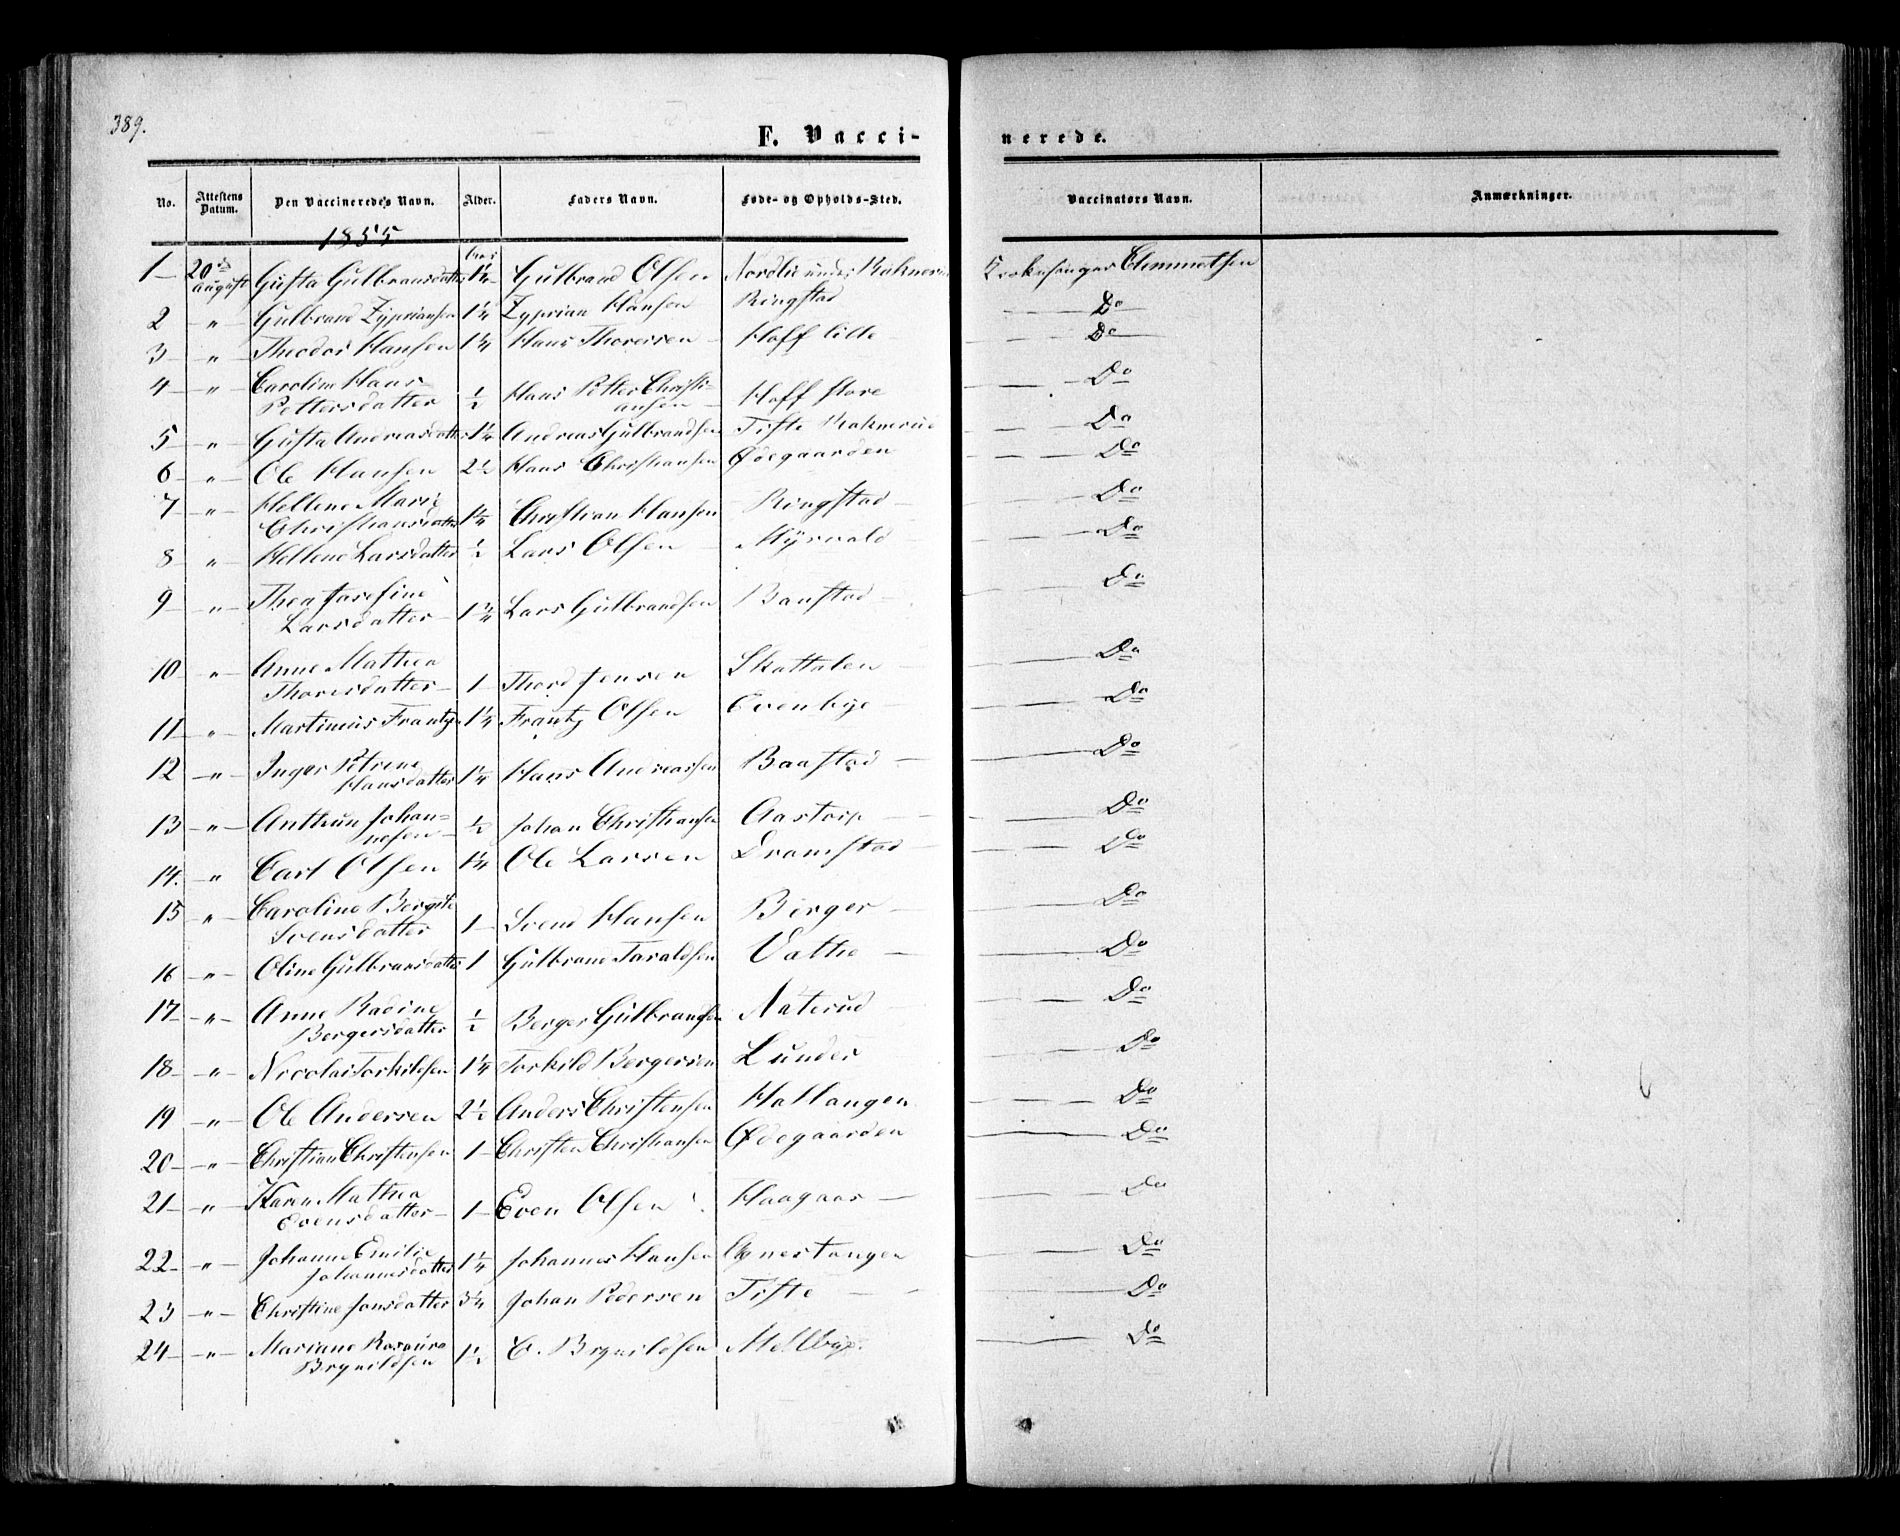 389.
F. Vacci-
nerede.
No. Attestens Datum. Den Vaccineredes Navn. Alder. Faders Navn. Føde- og Opholds-Sted. Vaccinators Navn. Anmærkninger.
1855
1 20de august Gusta Gulbransdatter 1 1/4 Gulbrand Olsen Nordlie under Kirkesanger Clemmetsen
2 " Gulbrand Zypriansen 1 1/4 Zyprian Hansen Ringstad Do
3 " Theodor Hansen 1 1/4 Hans Thoressen Hoff lille Do
4 " Caroline Hans
Pettersdatter 1/2 Hans Petter Christi-
ansen Hoff store Do
5 " Gusta Andreasdatter 1 1/4 Andreas Gulbrandsen Tifte Do
6 " Ole Hansen 2 1/2 Hans Christiansen Ødegaarden Do
7 " Hellene Marie
Christiansdatter 1 1/4 Christian Hansen Ringstad Do
8 " Hellene Larsdatter 1/2 Lars Olsen Myrvold Do
9 " Thea Josefine
Larsdatter 1 3/4 Lars Gulbrandsen Baastad Do
10 " Anne Mathea
Thoresdatter 1 Thord Jensen Skattalen Do
11 " Martinius Frantz 1 1/4 Frantz Olsen Evenbye Do
12 " Inger Petrine
Hansdatter 1 1/4 Hans Andreassen Baastad Do
13 " Anthun Johan=
nesen 1/2 Johan Christiansen Aastorp Do
14. " Carl Olsen 1 1/4 Ole Larsen Dramstad Do
15 " Caroline Bergite
Svensdatter 1 Svend Hansen Berger Do
16 " Oline Gulbransdatter 1 Gulbrand Taraldsen Do
17 " Anne Radine
Bergersdatter 1/2 Berger Gulbrandsen Naterud Do
18 " Nicolai Torkildsen 1 1/4 Torkild Bergersen Lunder Do
19 " Ole Andersen 2 1/2 Anders Christensen Hallangen Do
20 " Christian Christensen 1 Christen Christiansen Ødegaarden Do
21 " Karen Mathea
Evensdatter 1 Even Olsen Haagaas Do
22 " Johanne Emilie
Johannesdatter 1 1/4 Johannes Hansen Agnestangen Do
23 " Christine Jansdatter 3/4 Johan Pedersen Tifte Do
24 " Mariane Rosaura
Brynildsen 1 1/2 C. Brynildsen Mellbye. Do